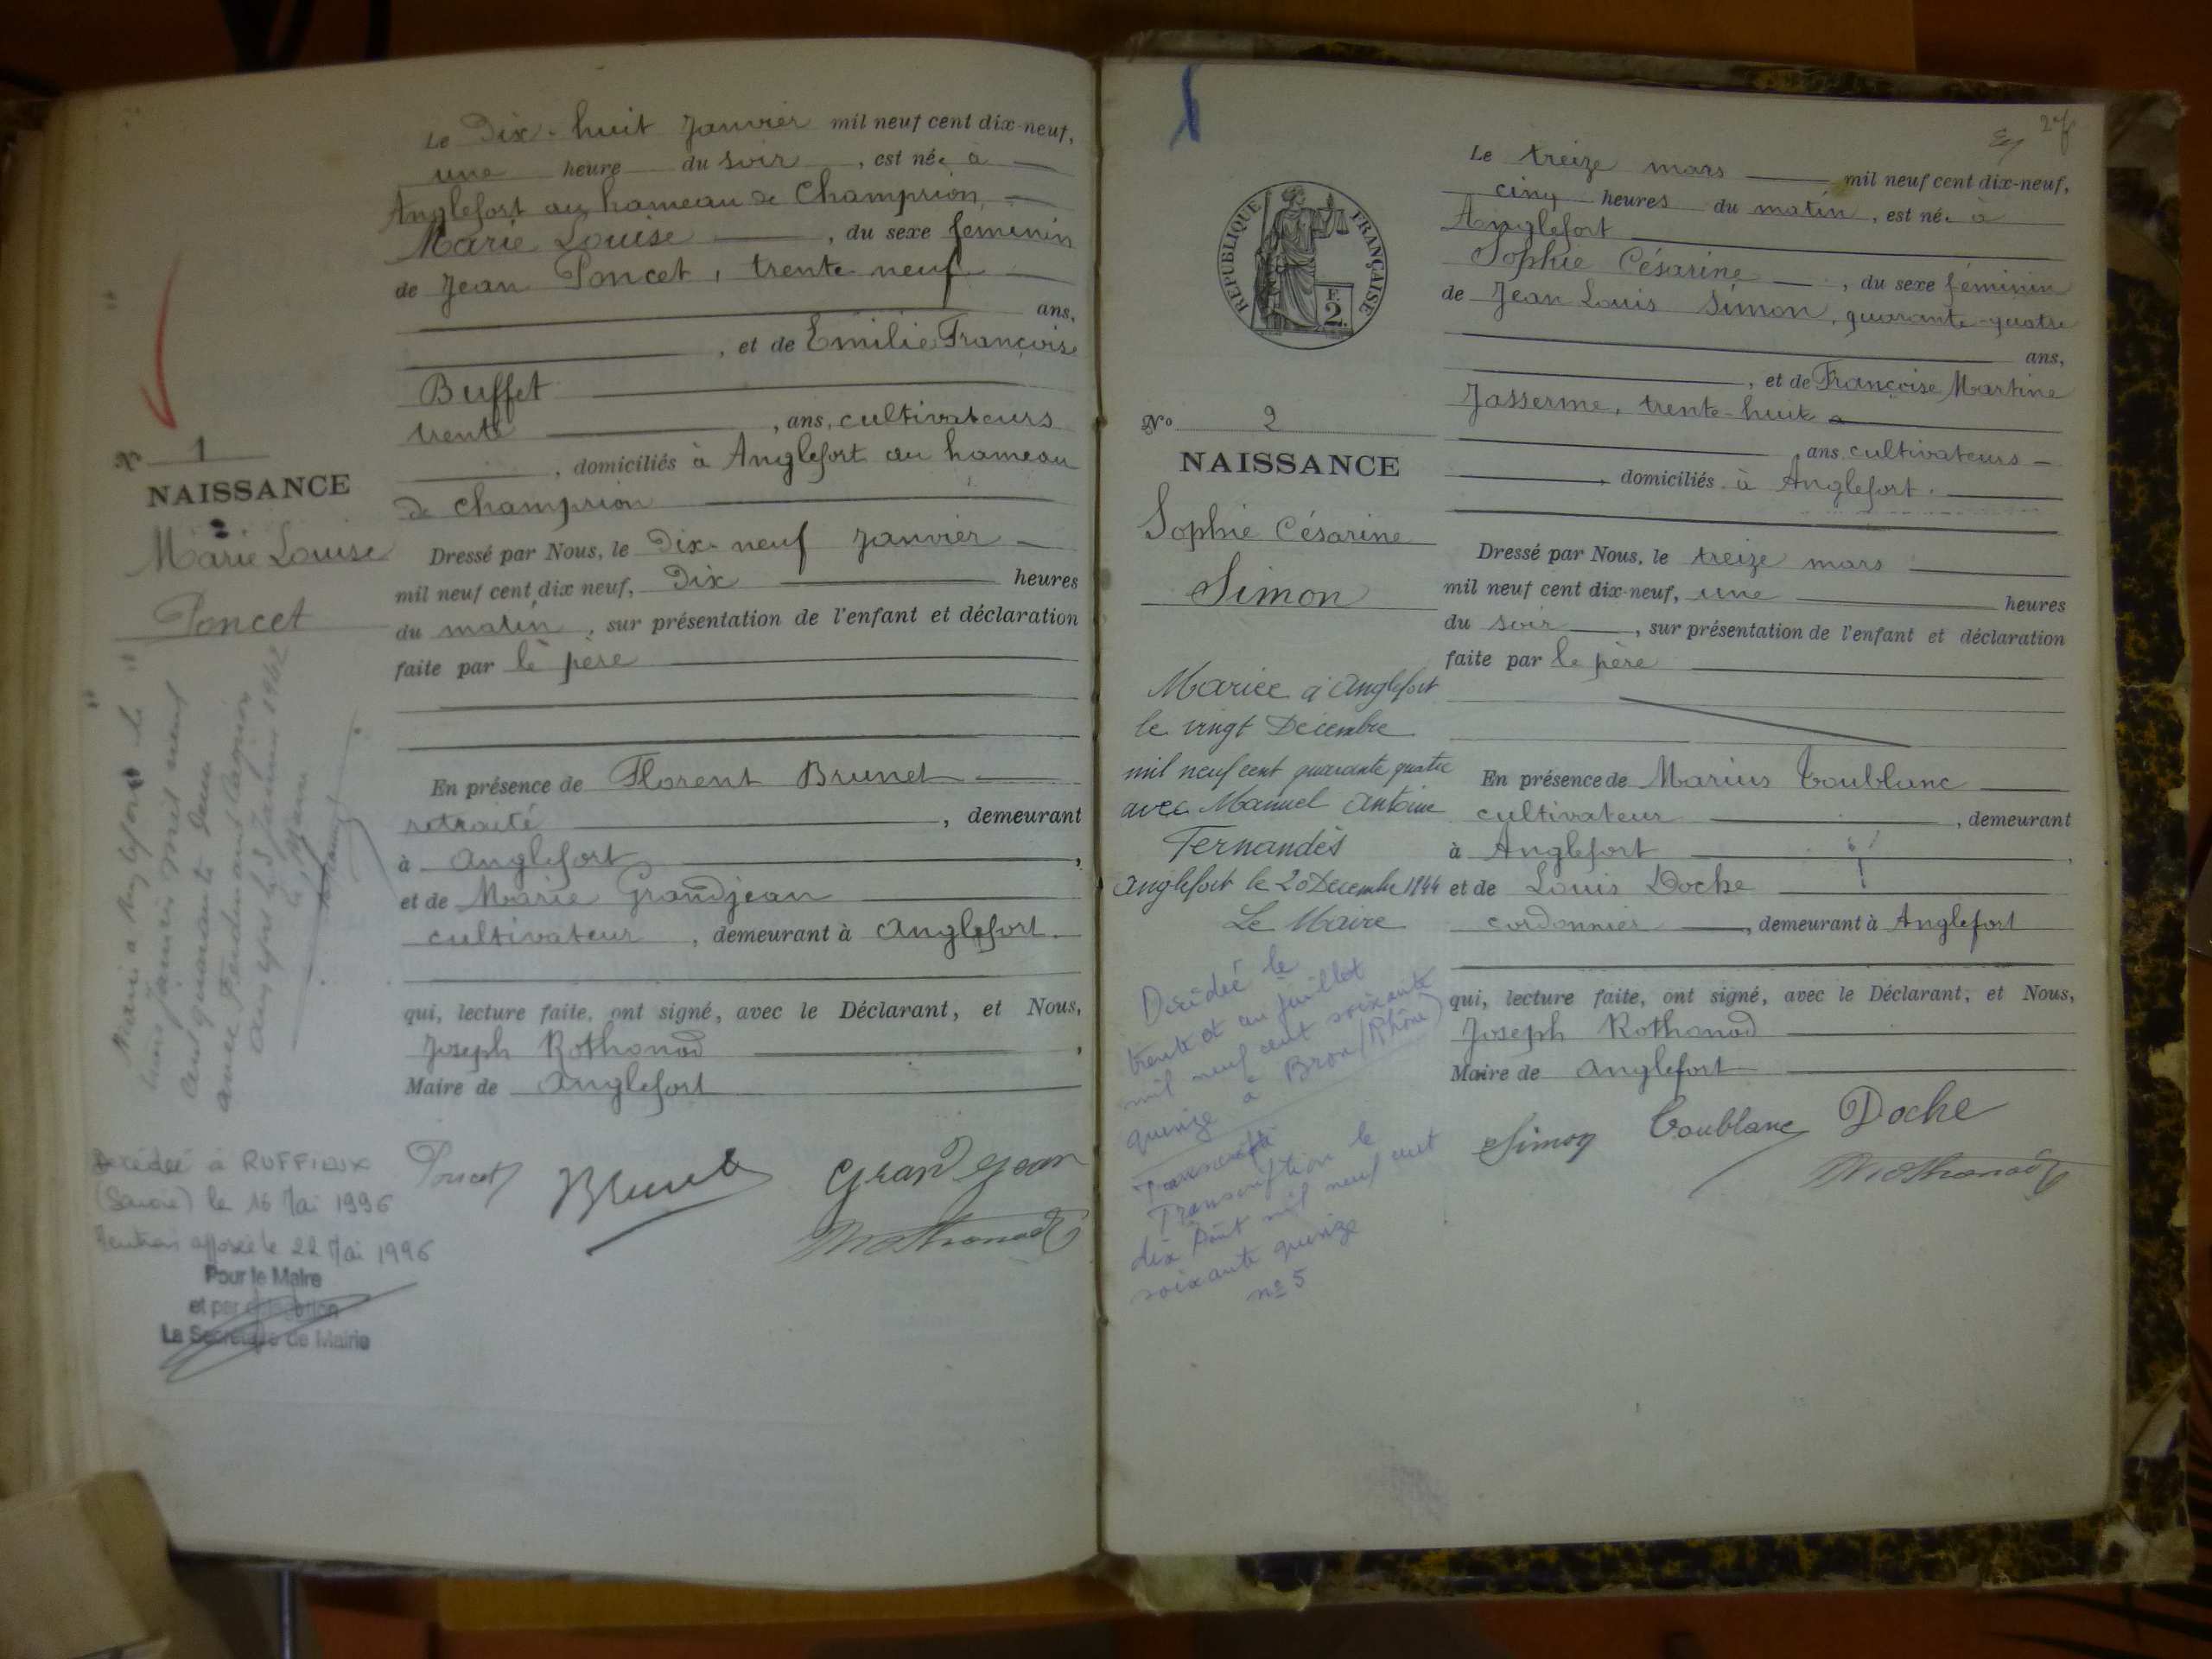 Le Dix-huit Janvier mil neuf cent dix-neuf,
une heure du soir, est née à
Anglefort au hameau de Champrion,
Marie Louise, du sexe féminin
de Jean Poncet, trente neuf
ans,
, et de Emilie Françoise
Buffet
trente, ans, cultivateurs
, domiciliés à Anglefort au hameau
de Champrion
N° 1
NAISSANCE
Marie Louise
Poncet
Dressé par Nous, le Dix-neuf Janvier
mil neuf cent dix neuf, Dix heures
du matin, sur présentation de l'enfant et déclaration
faite par le père
En présence de Florent Brunet
retraité, demeurant
à Anglefort,
et de Marie Grandjean
cultivateur, demeurant à Anglefort
qui, lecture faite, ont signé, avec le Déclarant, et Nous,
Joseph Rothonod,
Maire de Anglefort
Poncet Brunet Grandjean
Rothonod
Mariée à Anglefort le
trois Janvier mil neuf
cent quarante deux
avec Ferdinand
Anglefort le 3 Janvier 1942
le Maire
Décédée à RUFFIEUX
(Savoie) le 16 Mai 1996
Mention apposée le 22 Mai 1996
Pour le Maire
et par délégation
La Secrétaire de Mairie
27
RÉPUBLIQUE FRANÇAISE
F.
2.
Le treize mars mil neuf cent dix-neuf,
cinq heures du matin, est née à
Anglefort
Sophie Césarine, du sexe féminin
de Jean Louis Simon, quarante-quatre
ans,
, et de Françoise Martine
Jasserme, trente-huit
ans, cultivateurs
, domiciliés à Anglefort.
No 2
NAISSANCE
Sophie Césarine
Simon
Dressé par Nous, le treize mars
mil neuf cent dix-neuf, une heures
du soir, sur présentation de l'enfant et déclaration
faite par le père
En présence de Marius Toublanc
cultivateur, demeurant
à Anglefort,
et de Louis Doche
cordonnier, demeurant à Anglefort
qui, lecture faite, ont signé, avec le Déclarant, et Nous,
Joseph Rothonod
Maire de Anglefort
Simon Toublanc Doche
Rothonod
Mariée à Anglefort
le vingt Décembre
mil neuf cent quarante quatre
avec Manuel Antoine
Fernandès
Anglefort le 20 Décembre 1944
Le Maire
Décédée le
trente et un juillet
mil neuf cent soixante
quinze à Bron (Rhône)
Transcription le
dix Août mil neuf cent
soixante quinze
n° 5